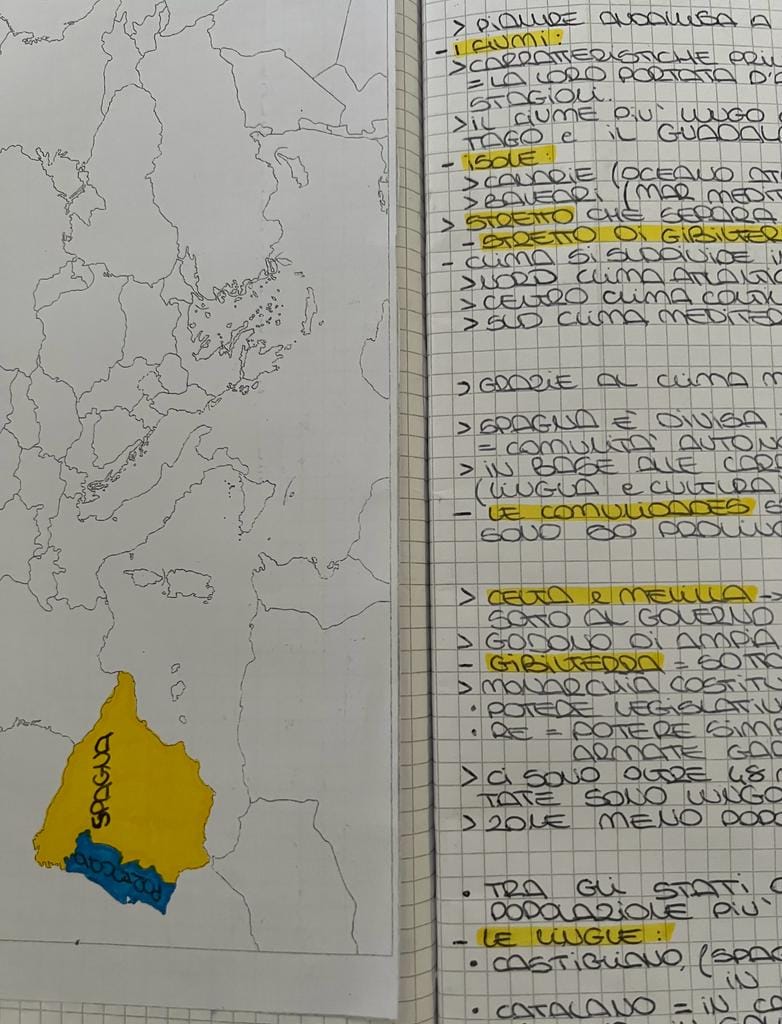 > PIANURE ANDALUSA A
- I FIUMI:
> CARATTERISTICHE PRI
= LA LORO PORTATA D'
STAGIONI.
> IL FIUME PIU' LUNGO
TAGO e IL GUADAL
- ISOLE:
> CANARIE (OCEANO AT
> BALEARI (MAR MEDIT
> STRETTO CHE SEPARA
- STRETTO DI GIBILTER
- CLIMA SI SUDDIVIDE I
> NORD CLIMA ATLANTI
> CENTRO CLIMA CONTI
> SUD CLIMA MEDITER
> GRAZIE AL CLIMA M
> SPAGNA È DIVISA
= COMUNITÀ AUTONO
> IN BASE ALLE CAR
(LINGUA e CULTURA)
- LE COMUNIDADES
SONO 50 PROVIN
> CEUTA e MELILLA ->
SOTTO AL GOVERNO
> GODONO DI AMPIA
- GIBILTERRA = SOTT
> MONARCHIA COSTITU
• POTERE LEGISLATIV
• RE = POTERE SIM
ARMATE
> CI SONO OLTRE 48
TATE SONO LUNGO
> ZONE MENO POPO
• TRA GLI STATI
POPOLAZIONE PIU'
- LE LINGUE:
• CASTIGLIANO, (SPAG
IN
• CATALANO = IN CA
SPAGNA
PORTOGALLO